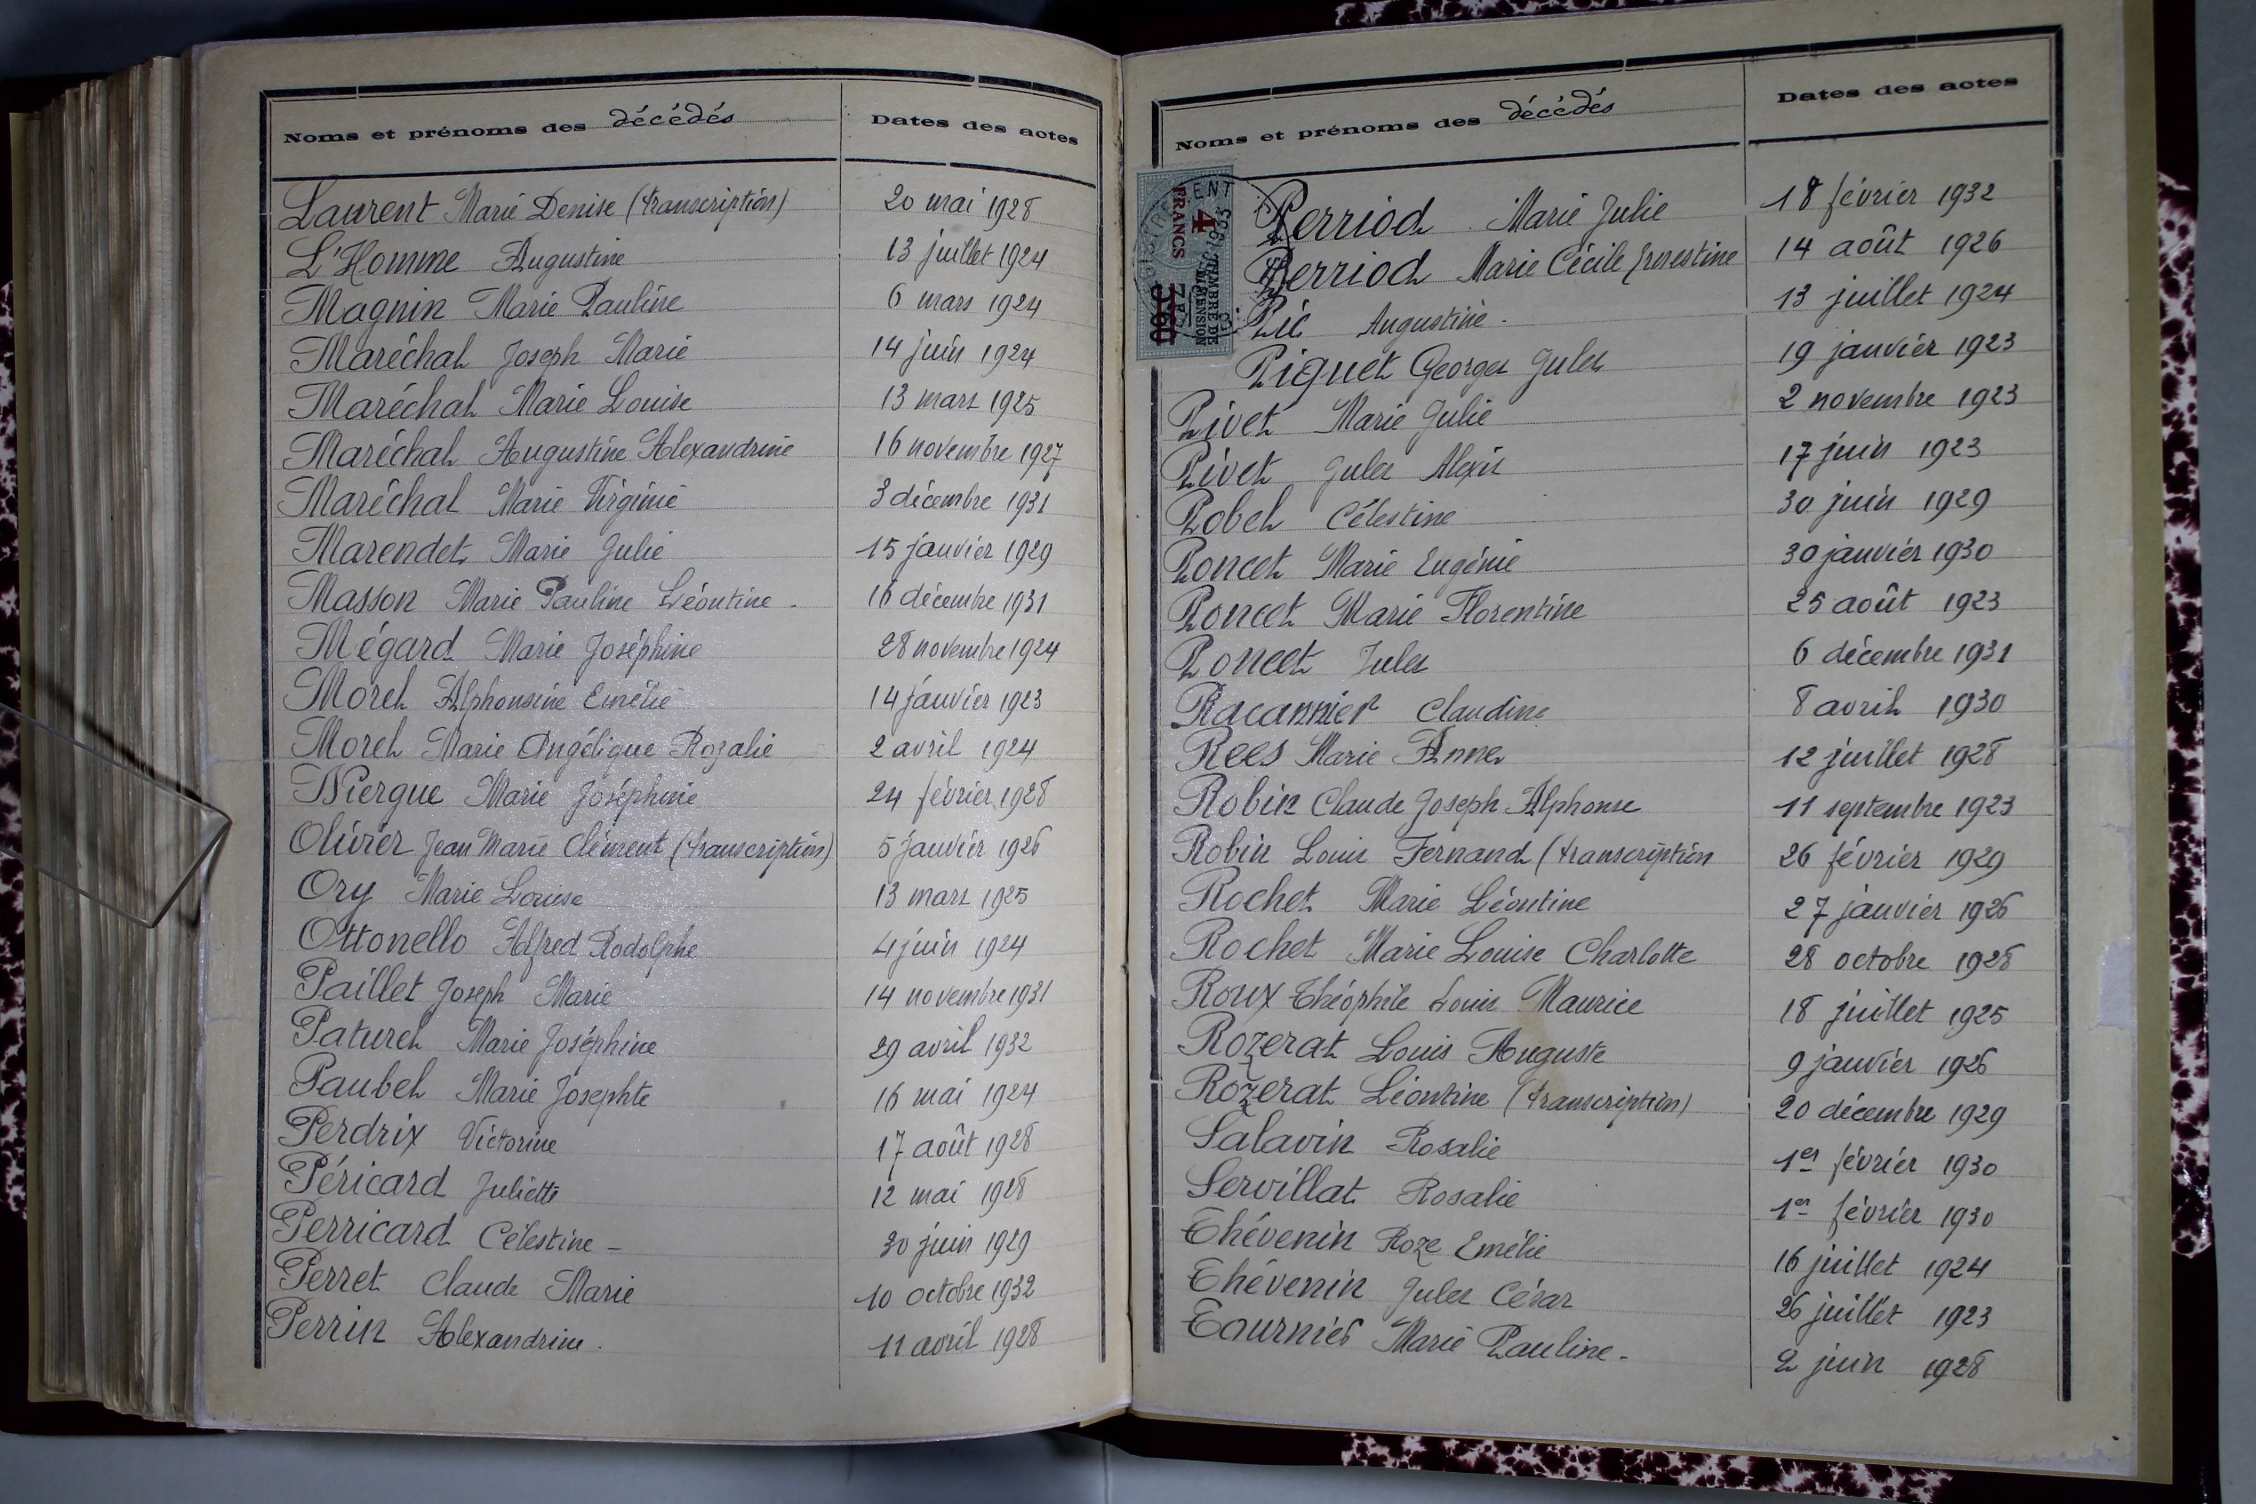 Noms et prénoms des décédés Dates des actes
Laurent Marie Denise (transcription) 20 mai 1928
L'Homme Augustine 13 juillet 1924
Magnin Marie Pauline 6 mars 1924
Maréchal Joseph Marie 14 juin 1924
Maréchal Marie Louise 13 mars 1925
Maréchal Augustine Alexandrine 16 novembre 1927
Maréchal Marie Virginie 3 décembre 1931
Marendet Marie Julie 15 janvier 1929
Masson Marie Pauline Léontine - 16 décembre 1931
Mégard Marie Joséphine 28 novembre 1924
Morel Alphonsine Emélie 14 janvier 1923
Morel Marie Angélique Rozalie 2 avril 1924
Niergue Marie Joséphine 24 février 1928
Olivier Jean Marie Clément (transcription) 5 janvier 1926
Ory Marie Louise 13 mars 1925
Ottonello Alfred Rodolphe 4 juin 1924
Paillet Joseph Marie 14 novembre 1931
Paturel Marie Joséphine 29 avril 1932
Paubel Marie Josephte 16 mai 1924
Perdrix Victorine 17 août 1928
Péricard Juliette 12 mai 1928
Perricard Célestine - 30 juin 1929
Perret Claude Marie 10 octobre 1932
Perrin Alexandrine. 11 avril 1928
Noms et prénoms des décédés Dates des actes
Perriod Marie Julie 18 février 1932
Perriod Marie Cécile Ernestine 14 août 1926
Pic Augustine - 13 juillet 1924
Piquet Georges Jules 19 janvier 1923
Pivet Marie Julie 2 novembre 1923
Pivet Jules Alexis 17 juin 1923
Pobel Célestine 30 juin 1929
Poncet Marie Eugénie 30 janvier 1930
Poncet Marie Florentine 25 août 1923
Poncet Jules 6 décembre 1931
Racannier Claudine 8 avril 1930
Rees Marie Anne 12 juillet 1928
Robin Claude Joseph Alphonse 11 septembre 1923
Robin Louis Fernand (transcription 26 février 1929
Rochet Marie Léontine 27 janvier 1926
Rochet Marie Louise Charlotte 28 octobre 1928
Roux Théophile Louis Maurice 18 juillet 1925
Rozerat Louis Auguste 9 janvier 1926
Rozerat Léontine (transcription) 20 décembre 1929
Salavin Rosalie 1er février 1930
Servillat Rosalie 1er février 1930
Thévenin Roze Emélie 16 juillet 1924
Thévenin Jules César 26 juillet 1923
Tournier Marie Pauline - 2 juin 1928
4 FRANCS
TIMBRE DE
DIMENSION
3F60